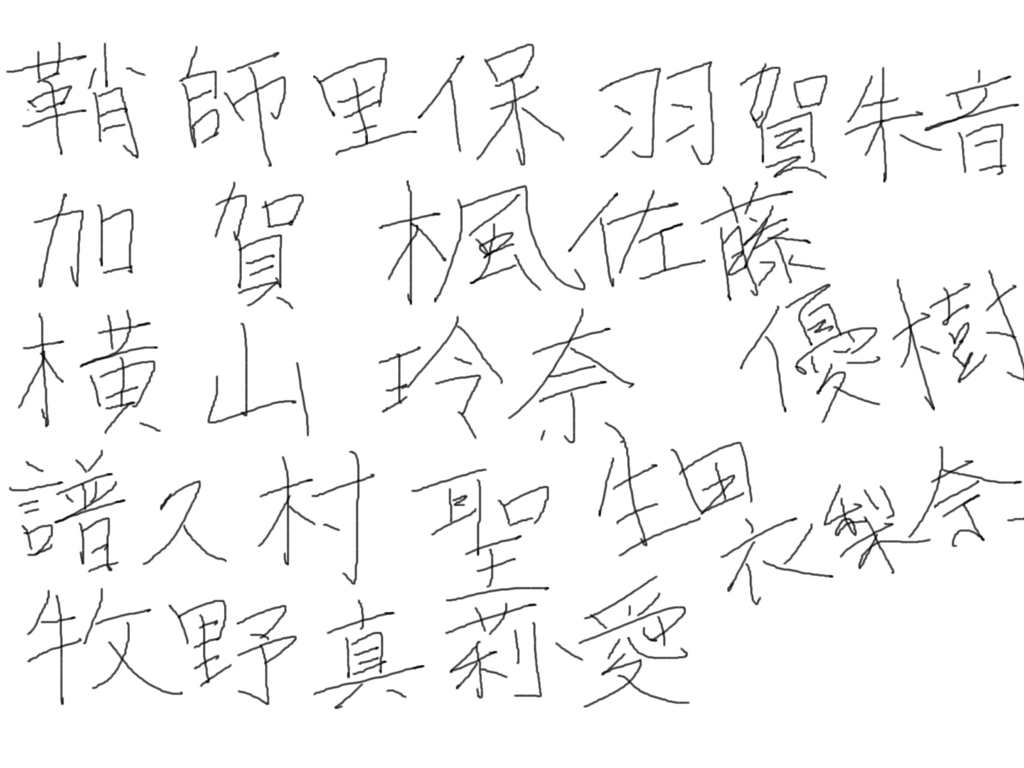 鞘師里保 羽賀朱音
加賀 楓 佐藤優樹
横山玲奈
譜久村聖 生田衣梨奈
牧野真莉愛